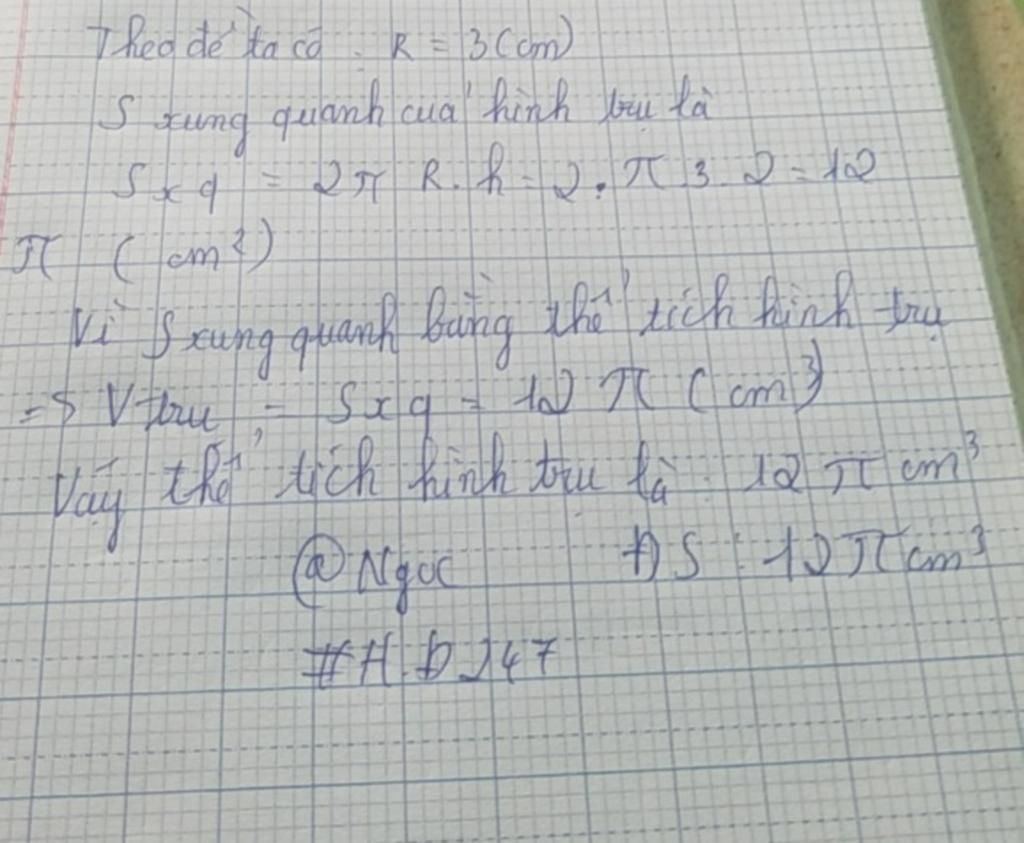 Theo đề ta có : R = 3 (cm)
S xung quanh của hình trụ là
Sxq = 2π R. h = 2. π 3. 2 = 12
π ( cm²)
Vì S xung quanh bằng thể tích hình trụ
=> V trụ = Sxq = 12 π ( cm³)
Vậy thể tích hình trụ là : 12 π cm³
@Ngọc ĐS : 12 π cm³
#H.D 247